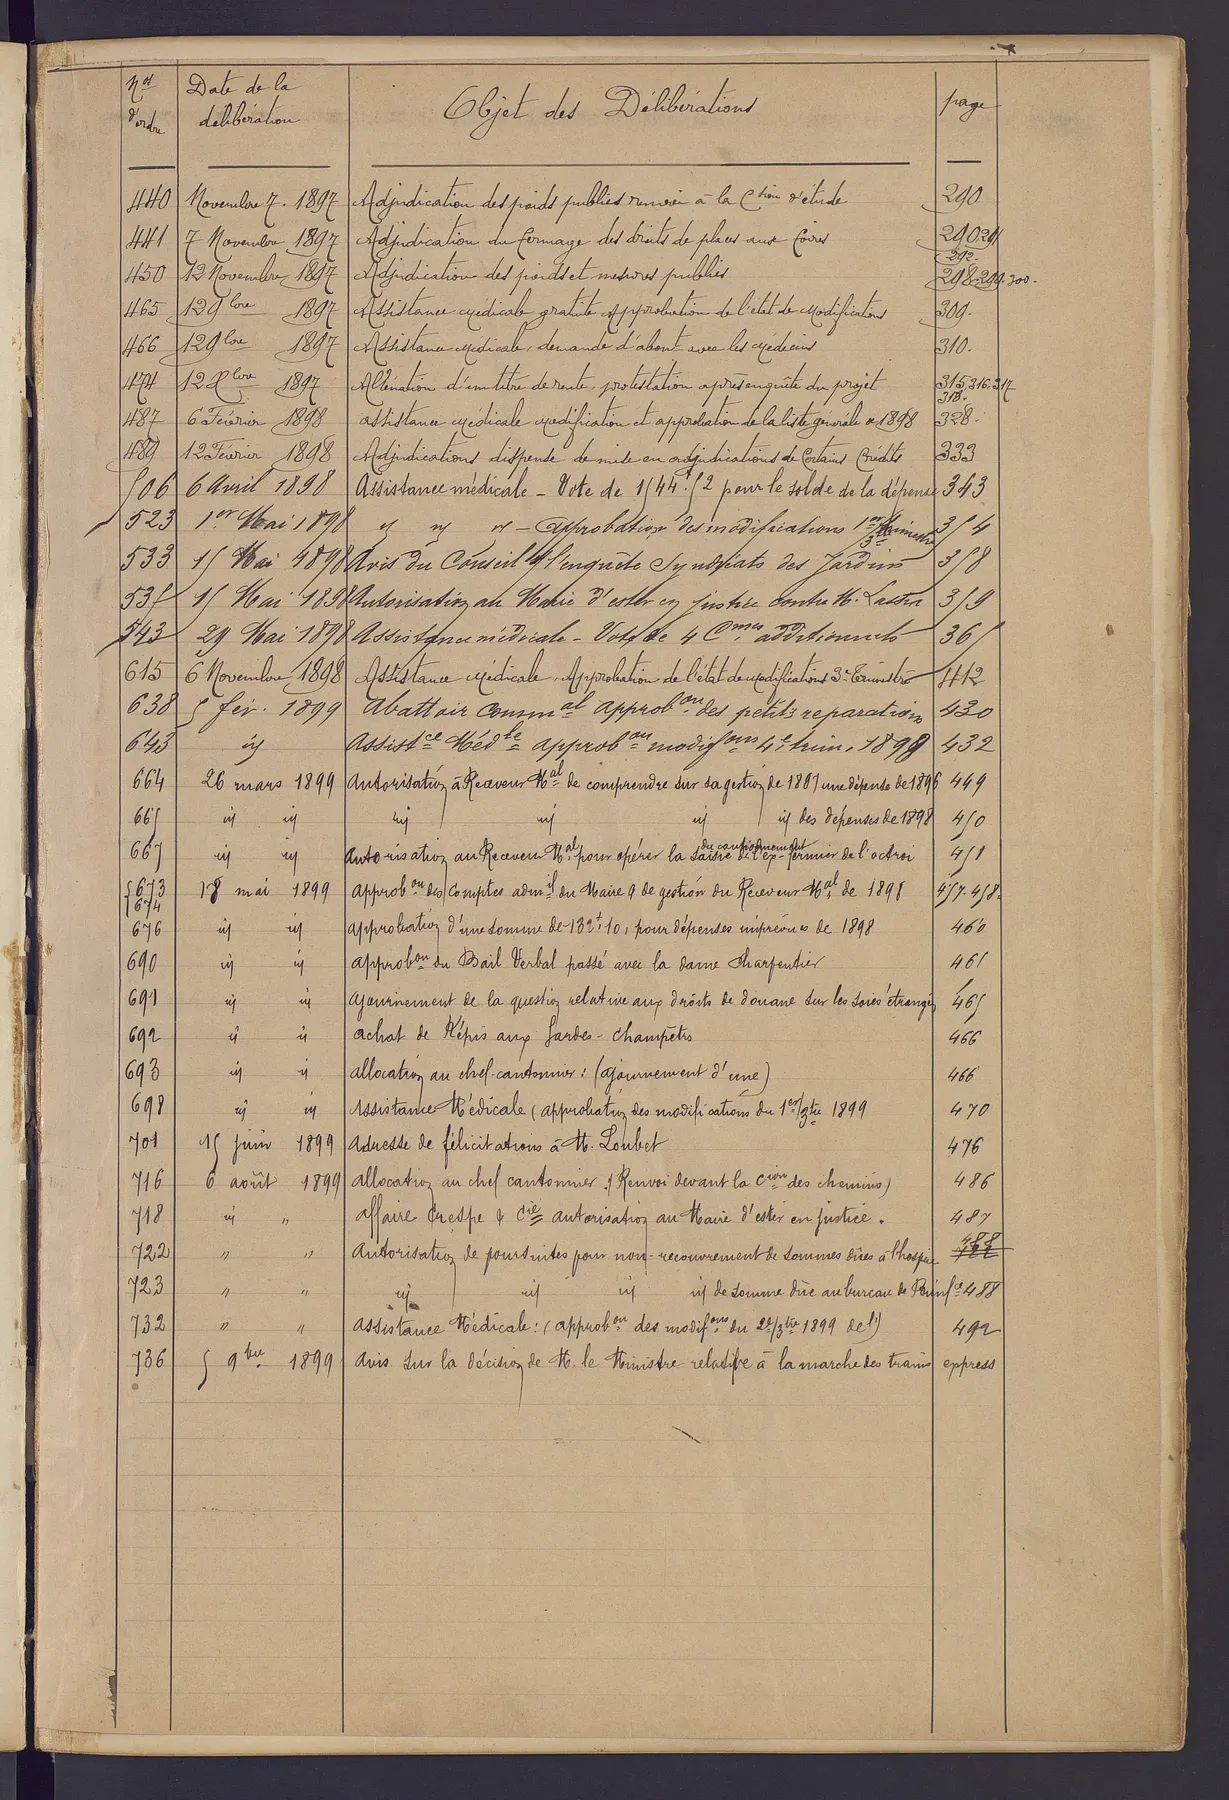 Nos d'ordre | Date de la délibération | Objet des Délibérations | page
440 | Novembre 7. 1897 | Adjudication des poids publics renvoi à la Ction d'étude | 290
441 | 7 Novembre 1897 | Adjudication du fermage des droits de places aux foires | 290 291 292
450 | 12 Novembre 1897 | Adjudication des poids et mesures publics | 298-299-300.
465 | 12 9bre 1897 | Assistance médicale gratuite Approbation de l'état de Modifications | 309.
466 | 12 9bre 1897 | Assistance médicale, demande d'abont avec les médecins | 310.
474 | 12 Xbre 1897 | Alliénation d'un titre de rente, protestation après enquête du projet | 315,316.317 318.
487 | 6 Février 1898 | assistance médicale modification et approbation de la liste générale 1898 | 328.
489 | 12 Février 1898 | Adjudications dispense de mise en adjudications de Certains Crédits | 333
506 | 6 Avril 1898 | Assistance médicale - Vote de 1544f52 pour le solde de la dépense | 343
523 | 1er Mai 1898 | " " " - approbation des modifications 1er trimestre | 354
533 | 15 Mai 1898 | Avis du Conseil s/ l'enquête Syndicats des Jardins | 358
535 | 15 Mai 1898 | Autorisation au Maire d'ester en justice contre M. | 359
543 | 29 Mai 1898 | Assistance médicale - Vote de 4 Cmes additionnels | 365
615 | 6 Novembre 1898 | Assistance médicale, Approbation de l'état de modifications 3e Trimestre | 412
638 | 5 fév. 1899 | Abattoir commal approbon des petites reparations | 430
643 | " | Assistce Médle approbon modifons 4e trim. 1898 | 432
664 | 26 mars 1899 | Autorisation à Receveur Mal de comprendre sur sa gestion de 1897 une dépense de 1896 | 449
665 | " " | " " " " des dépenses de 1898 | 450
667 | " " | Autorisation au Receveur Mal pour opérer la saisie du cautionnement de l'ex-fermier de l'octroi | 451
673 674 | 18 mai 1899 | Approbon des comptes admif du Maire & de gestion du Receveur Mal de 1898 | 457-458.
676 | " " | approbation d'une somme de 132f,10, pour dépenses imprévues de 1898 | 460
690 | " " | approbon du Bail Verbal passé avec la dame Charpentier | 461
691 | " " | ajournement de la question relative aux droits de douane sur les soies étrangères | 465
692 | " " | achat de Képis aux Gardes-champêtres | 466
693 | " " | allocation au chef-cantonnier: (ajournement d'une) | 466
698 | " " | Assistance Médicale (approbation des modifications du 1er/3tre 1899 | 470
701 | 15 juin 1899 | Adresse de félicitations à M. Loubet | 476
716 | 6 août 1899 | allocation au chef cantonnier. (Renvoi devant la Cion des chemins) | 486
718 | " " | affaire Crespe & Cie autorisation au Maire d'ester en justice. | 487
722 | " " | Autorisation de poursuites pour non-recouvrement de sommes dûes à l'hospice | 488
723 | " " | " " " " de somme dûe au bureau de Bienfce | 488
732 | " " | Assistance Médicale: (approbon des modifons du 2e/3tre 1899 de l') | 492
736 | 5 9bre 1899 | Avis sur la décision de M. le Ministre relative à la marche des trains express